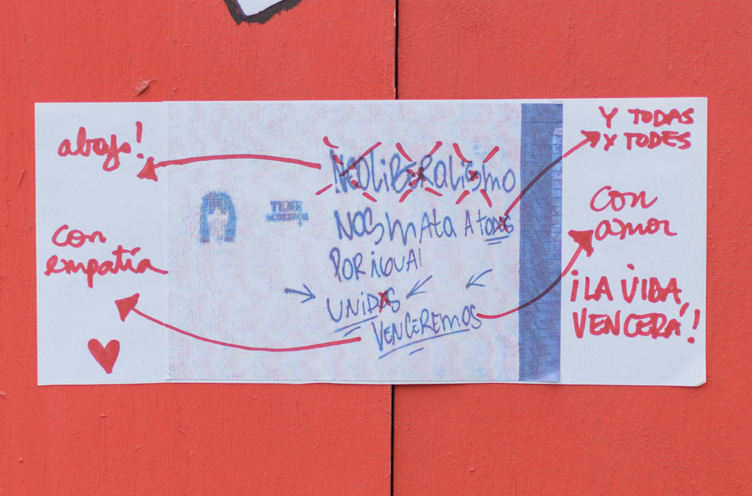 abajo!
con
empatía
NEOLIBERALISMO
NOS MATA A TODOS
POR IGUAL
UNIDOS
VENCEREMOS
Y TODAS
Y TODES
con
amor
¡LA VIDA
VENCERÁ!